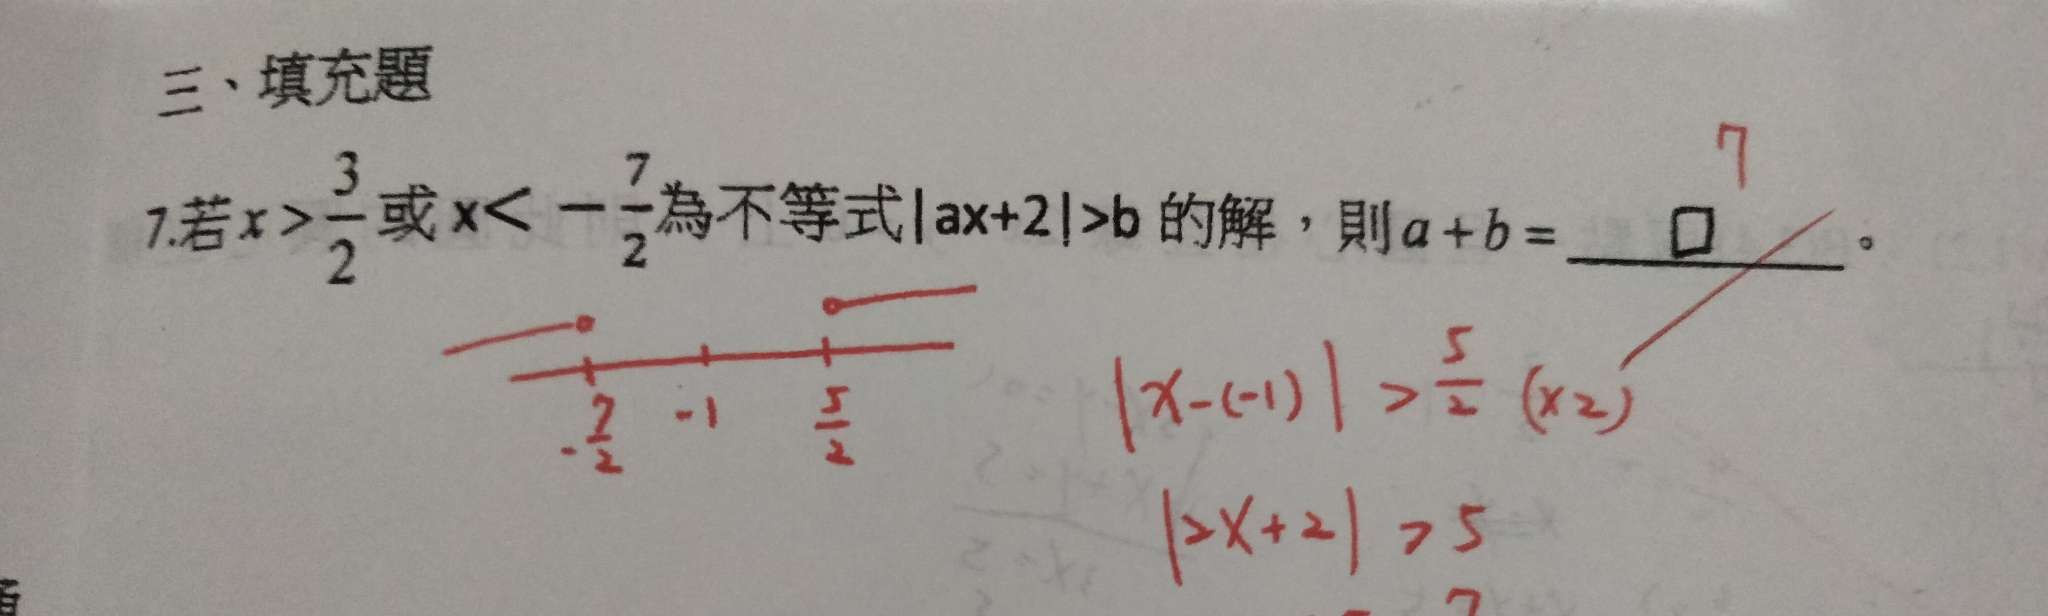 三、填充題
7
7.若 x > 3/2 或 x< －7/2 為不等式|ax+2|>b 的解，則 a + b = □ 。
-7/2 -1 5/2
|x-(-1)| > 5/2 (x2)
|2x+2| > 5
7